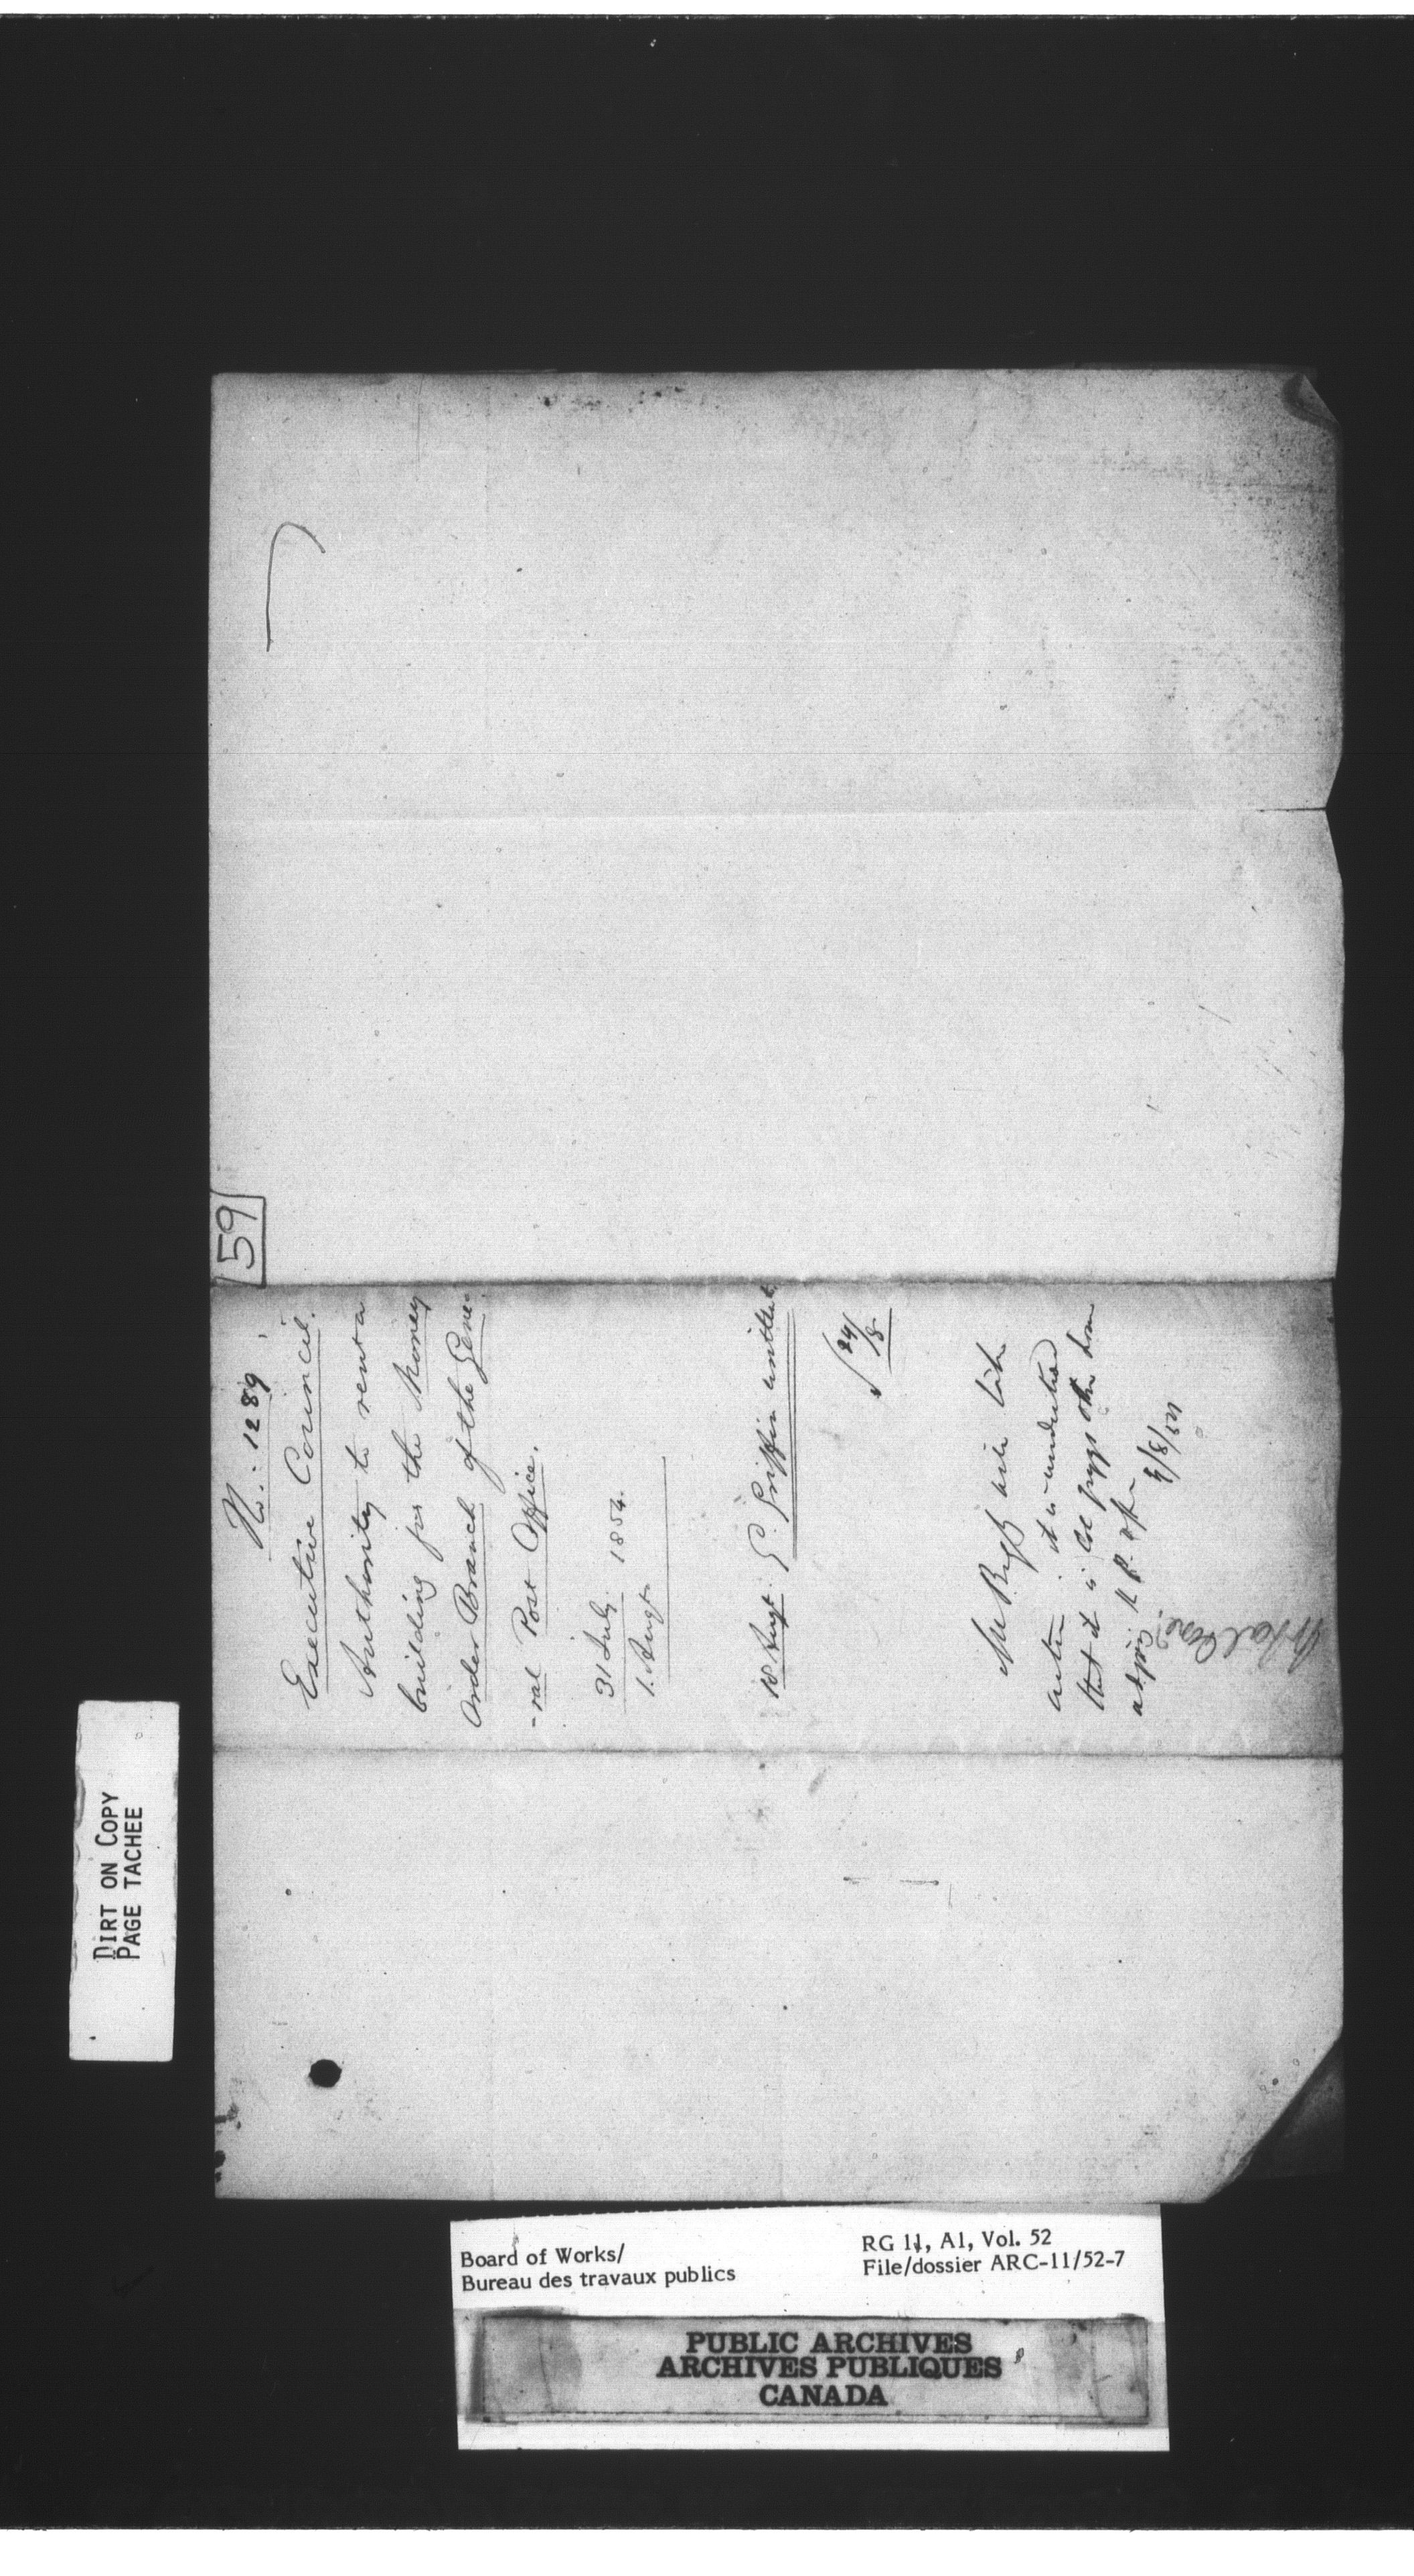 59
No. 1289
Executive Council.
Authority to rent a
building for the Money
Order Branch of the Gene-
-ral Post Office.
31 July 1854.
1. Augt.
18 Augt. G. Griffin
24/8
Mr Begly will take
action it is understood
that it is
DIRT ON COPY
PAGE TACHEE
Board of Works/
Bureau des travaux publics
RG 11, A1, Vol. 52
File/dossier ARC-11/52-7
PUBLIC ARCHIVES
ARCHIVES PUBLIQUES
CANADA